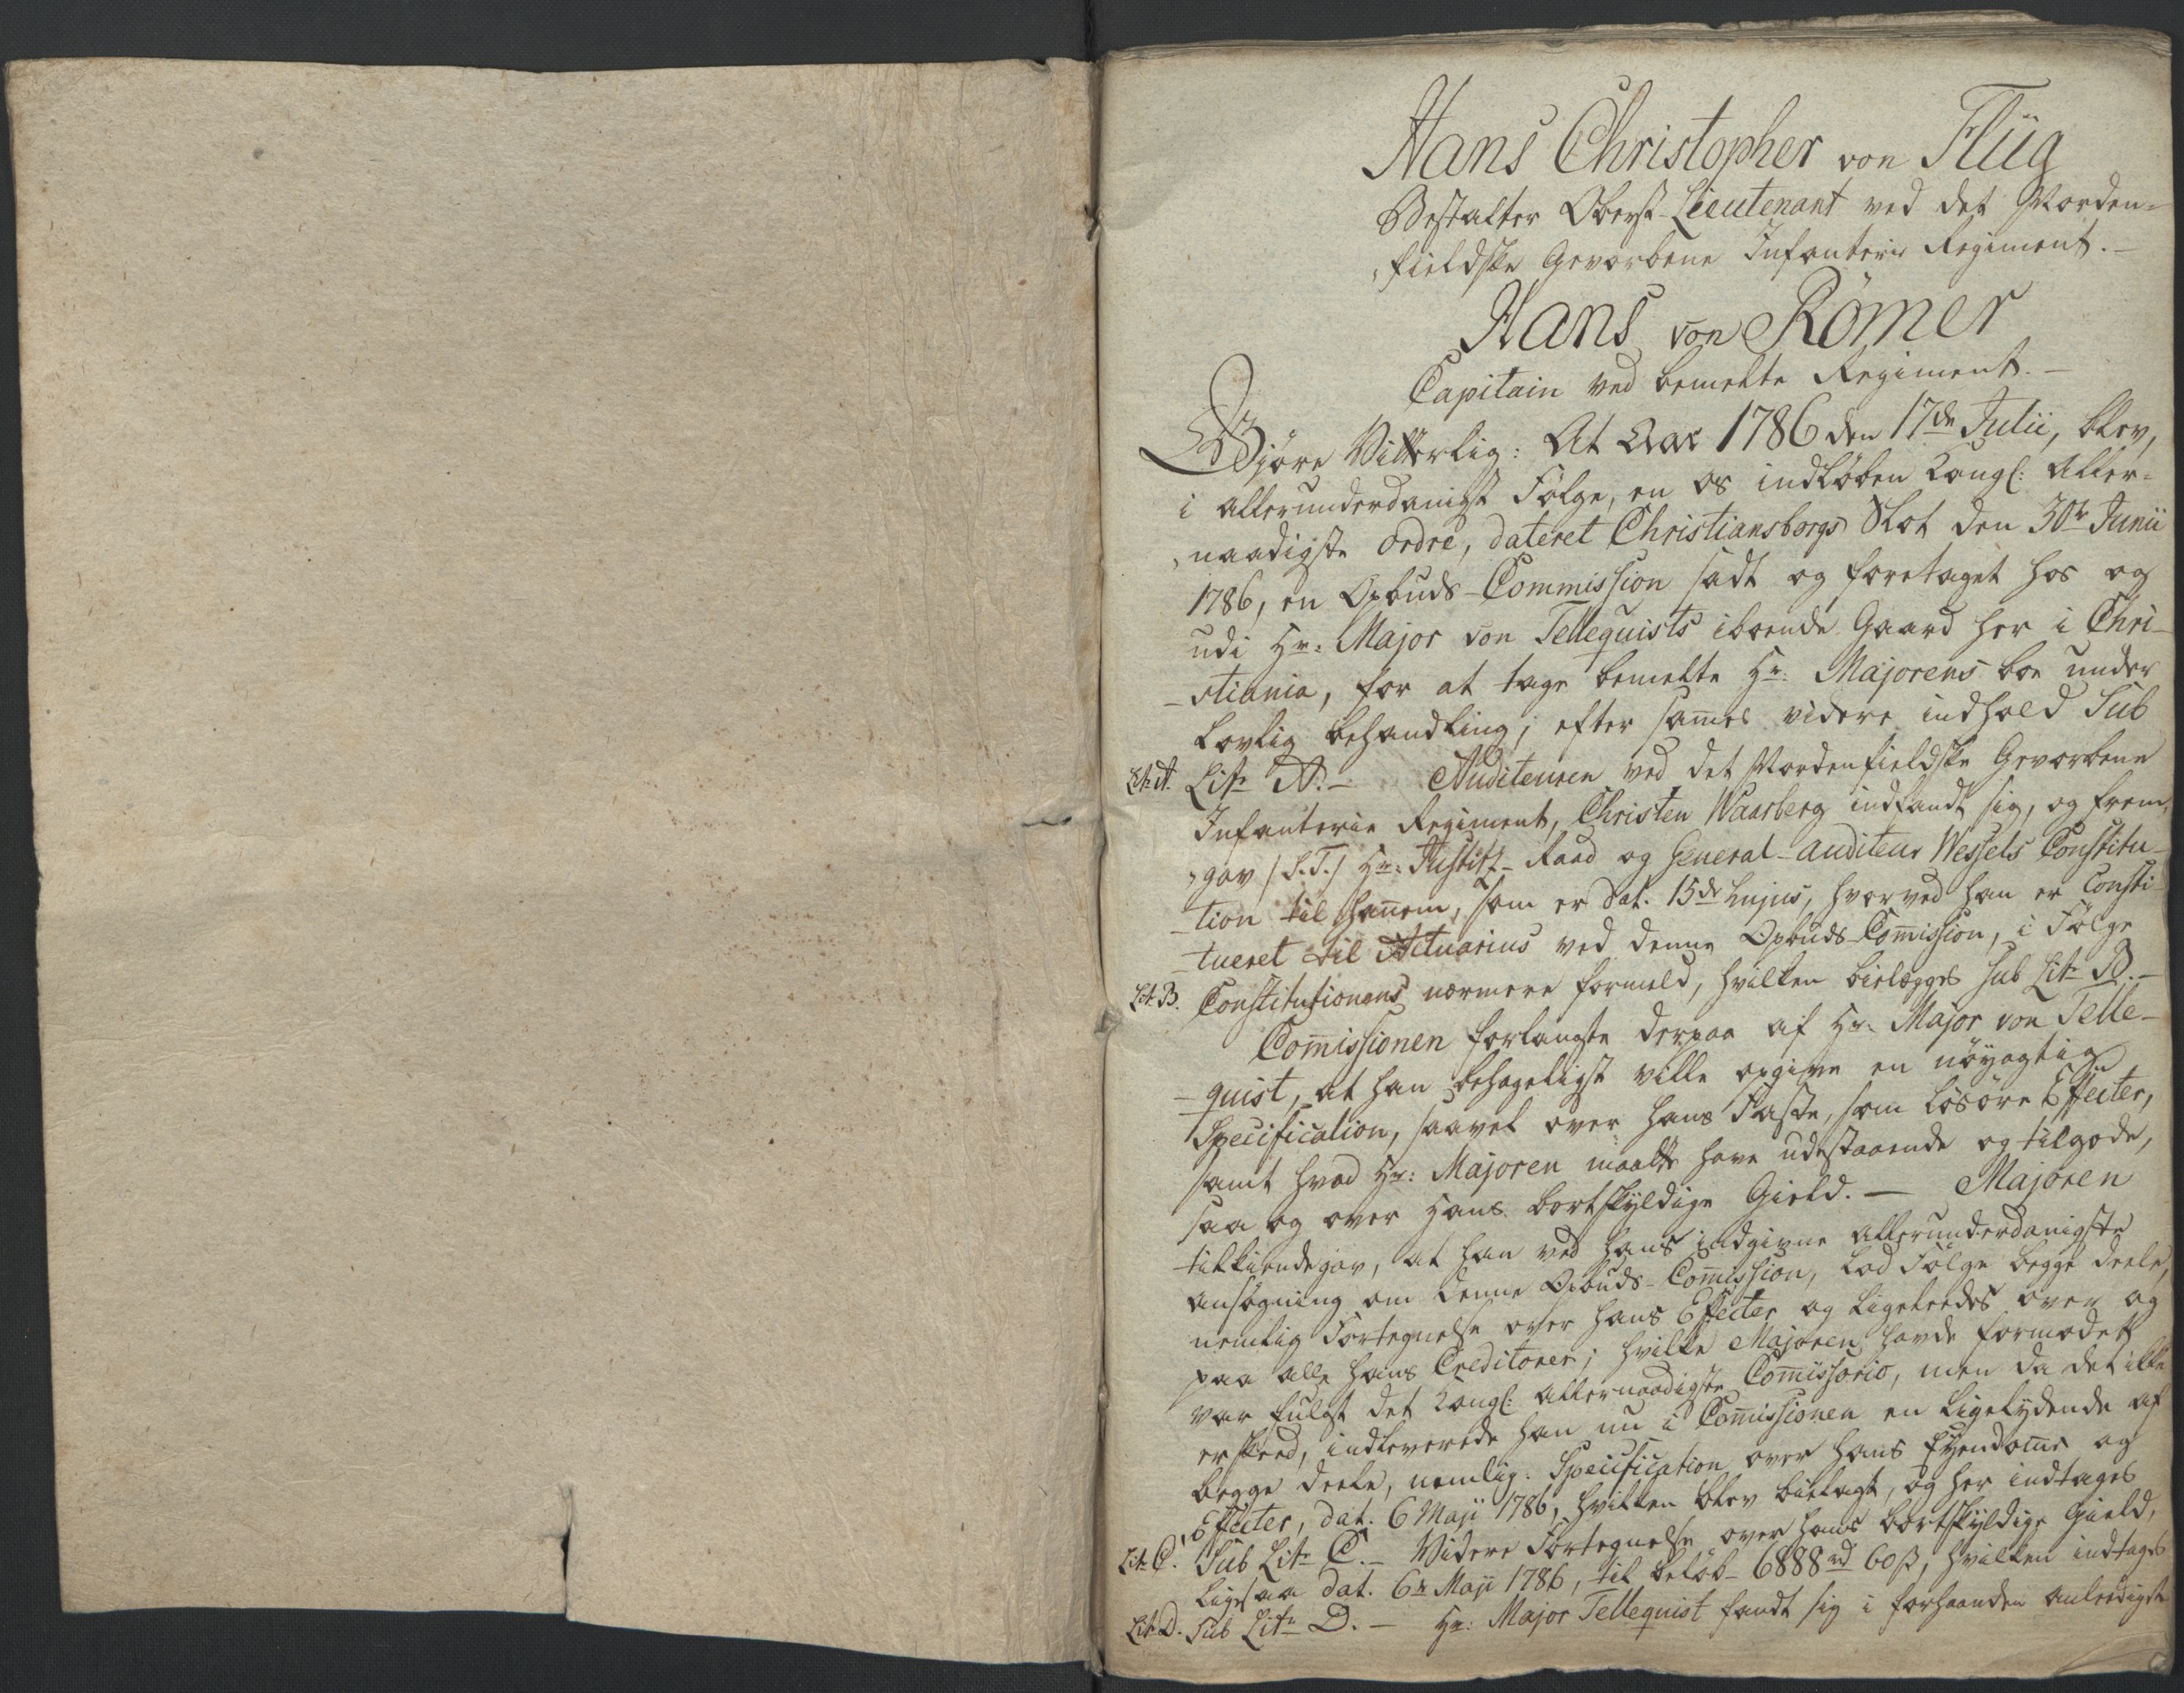 Hans Christopher von Flüg
Bestalter Oberst-Lieutenant ved det Norden-
fieldske Gevorbene Infanterie Regiment.-
Hans von Römer
Capitain ved bemelte Regiment.-
Giöre Vitterlig: At Aar 1786 den 17de Julii, blev,
i allerunderdanigst Fölge, en os indlöben Kongl: Aller-
naadigste Ordre, dateret Christiansborgs Slot den 30te Junii
1786, en Opbuds-Commission sadt og foretaget hos og
udi Hr: Major von Tellequists iboende Gaard her i Chri-
-stiania, for at tage bemelte Hr: Majorens boe under
Lovlig behandling; efter sam̄es videre indhold Sub
Litr. A. Litr A.- Auditeuren ved det Nordenfieldske Gevorbene
Infanterie Regiment, Christen Waarberg indfandt sig, og frem-
gav /S.T./ Hr: Justitz-Raad og General-Auditeur Wessels Constitu-
-tion til han̄em, som er dat. 15de hujus, hvorved han er Consti-
-tueret til Actuarius ved denne Opbuds-Com̄ission, i Fölge
Litr. B. Constitutionens nærmere formeld, hvilken bielægges sub Litr B.-
Com̄issionen forlangte derpaa af Hr. Major von Telle-
-quist, at han behageligst ville opgive en nöyagtig
Specification, saavel over hans Faste, som Lösöre Effecter,
samt hvad Hr: Majoren maatte have udestaaende og tilgode,
saa og over Hans bortskyldige Gield.- Majoren
tilkiendegav, at han ved hans indgivne allerunderdanigste
ansögning om denne Opbuds-Com̄ission, lod Fölge begge deele,
nemlig Fortegnelse over hans Effecter og Ligeledes over og
paa alle hans Creditorer; hvilke Majoren havde formodet
var fulgt det Kongl: allernaadigste Com̄issorio, men da det ikke
er skeed, indleverede han nu i Com̄issionen en Ligelydende af
begge deele, nemlig: Specification over hans Eyendom̄e og
Effecter, dat. 6 Maji 1786, hvilken blev bielagt, og her indtages
Litr. C. Sub Litr C.- Videre Fortegnelse over hans bortskyldige Gield,
Ligesaa dat. 6te Maji 1786, til beløb- 6888 rd 60 ß, hvilken indtages
Litr. D. Sub Litr D.- Hr: Major Tellequist fandt sig i forhaanden anleedigste